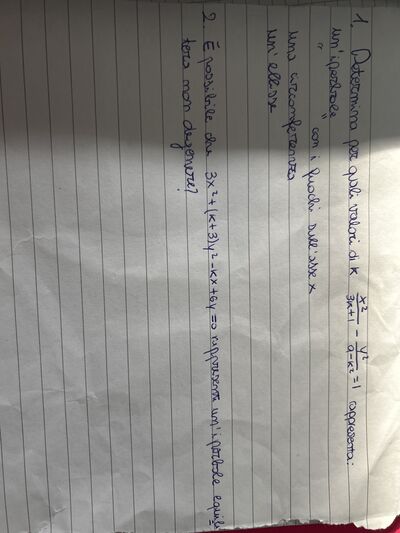 1. Determina per quali valori di k x²/(3k+1) - y²/(9-k²) = 1 rappresenta:
un'iperbole
" " con i fuochi sull'asse x
una circonferenza
un'ellisse
2. È possibile che 3x²+(k+3)y²-kx+6y=0 rappresenti un'iperbole equila
tera non degenere?